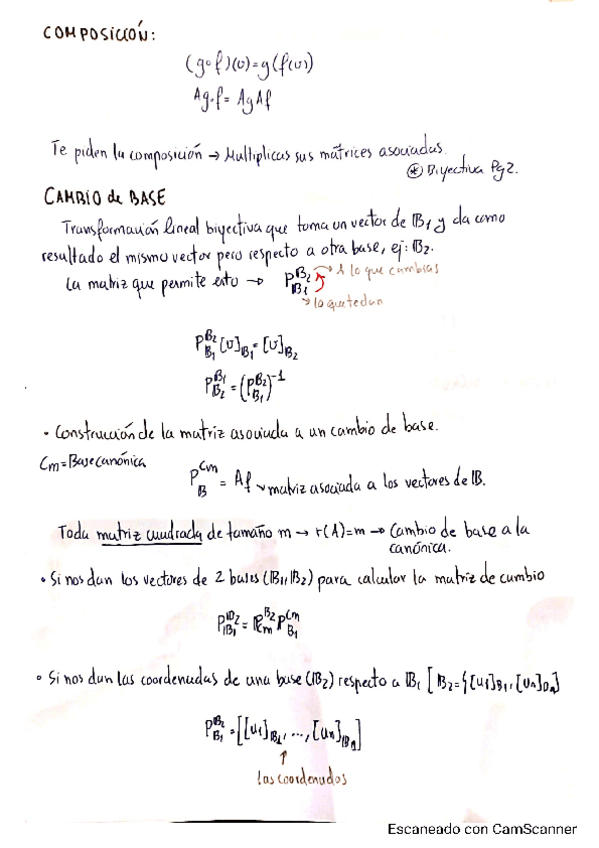 COMPOSICIÓN:
(g∘f)(v)=g(f(v))
Ag∘f = AgAf
Te piden la composición → Multiplicas sus matrices asociadas.
⊛ Biyectiva Pg2.
CAMBIO de BASE
Transformación lineal biyectiva que toma un vector de B₁ y da como
resultado el mismo vector pero respecto a otra base, ej: B₂.
La matriz que permite esto → P_{B₁}^{B₂} → A lo que cambias
→ lo que te dan
P_{B₁}^{B₂} [v]_{B₁} = [v]_{B₂}
P_{B₂}^{B₁} = (P_{B₁}^{B₂})^{-1}
• Construcción de la matriz asociada a un cambio de base.
Cm = Base canónica
P_{B}^{Cm} = Af → matriz asociada a los vectores de B.
Toda matriz cuadrada de tamaño m → r(A)=m → Cambio de base a la
canónica.
• Si nos dan los vectores de 2 bases (B₁, B₂) para calcular la matriz de cambio
P_{B₁}^{B₂} = P_{Cm}^{B₂} P_{B₁}^{Cm}
• Si nos dan las coordenadas de una base (B₂) respecto a B₁ [B₂={[u₁]_{B₁}, [uₙ]
P_{B₁}^{B₂} = [[u₁]_{B₁}, ..., [uₙ]_{B₁}]
↑
las coordenadas
Escaneado con CamScanner